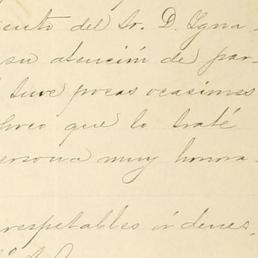 iento del Sr. D. Igna-
su atención de par-
tuve pocas ocasiones
poco que lo traté
ersona muy honra-
respetables órdenes,